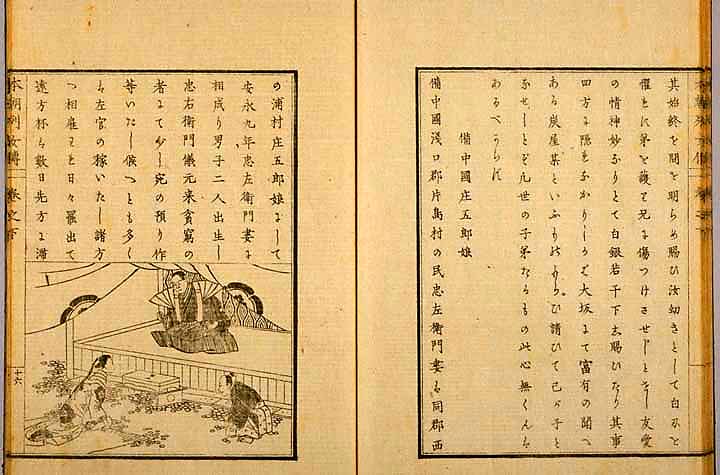 其始終を聞を明らめ賜ひ汝幼きとして白刃を
懼れに弟を護て兄を傷つけさせじとせし友愛
の情神妙なりとて白銀若干下賜ひたり其事
四方に隠れなかりしかば大坂にて富有の聞へ
ある炭屋某といふもの ひ請ひて己が子と
なせしとぞ凡世の子弟たるもの此心無くんば
あるべからず
備中國庄五郎娘
備中國淺口郡片島村の民忠左衛門妻は同郡西
の浦村庄五郎娘にして
安永九年忠左衛門妻に
相成り男子二人出生し
忠右衛門儀元来貧窮の
者にて少し宛の預り作
等いたし候へとも多く
は左官の稼いたし諸方
へ相雇はれ日々罷出て
遠方杯は数日先方に滞
本朝列女傳 巻之下
十六